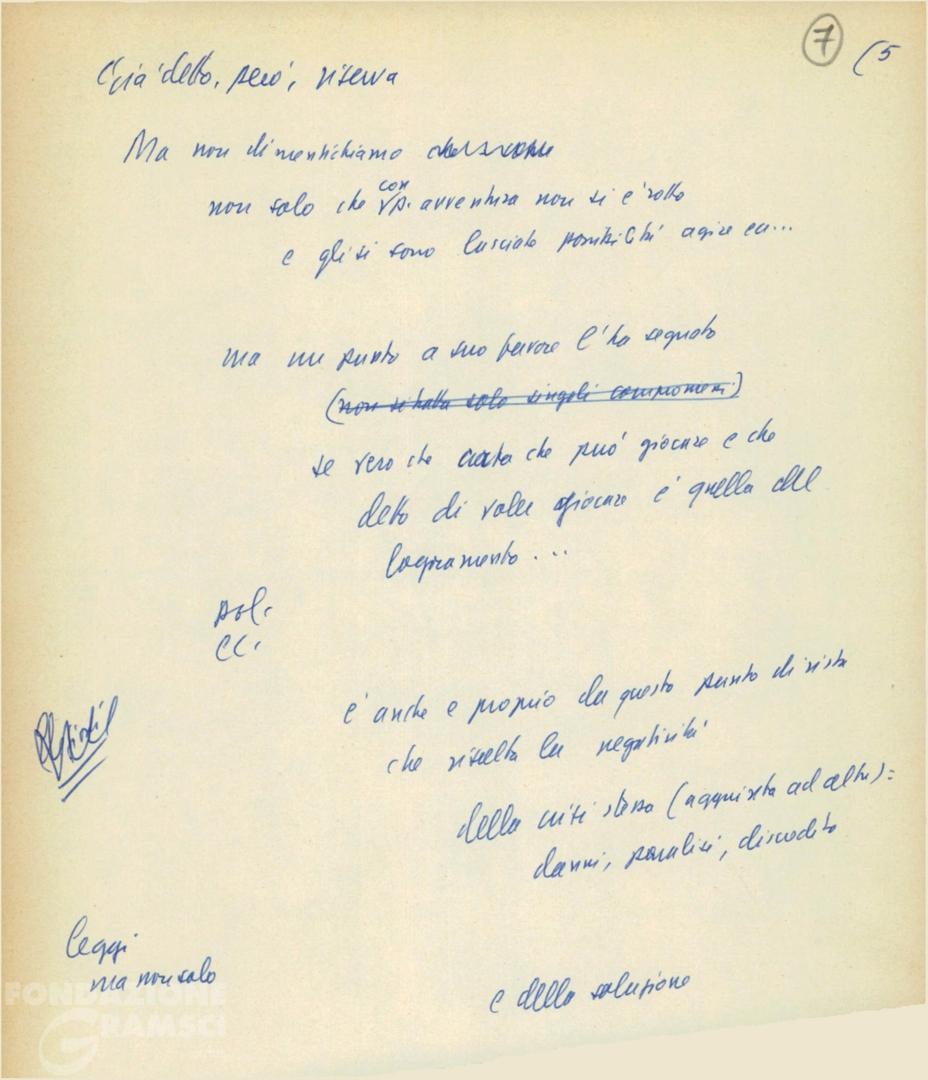 7 (5
C'già detto, però, riserva
Ma non dimentichiamo
non solo che con p. avventura non si è rotto
e gli si sono lasciate possibilità agire ecc...
ma un punto a suo favore l'ha segnato
(non si tratta solo singoli componenti)
se vero che carta che può giocare e che
detto di voler giocare è quella del
logoramento...
pol.
CC.
è anche e proprio da questo punto di vista
che risalta la negatività
della crisi stessa (aggiunta ad altri):
danni, paralisi, discredito
leggi
ma non solo
e della soluzione
FONDAZIONE
GRAMSCI